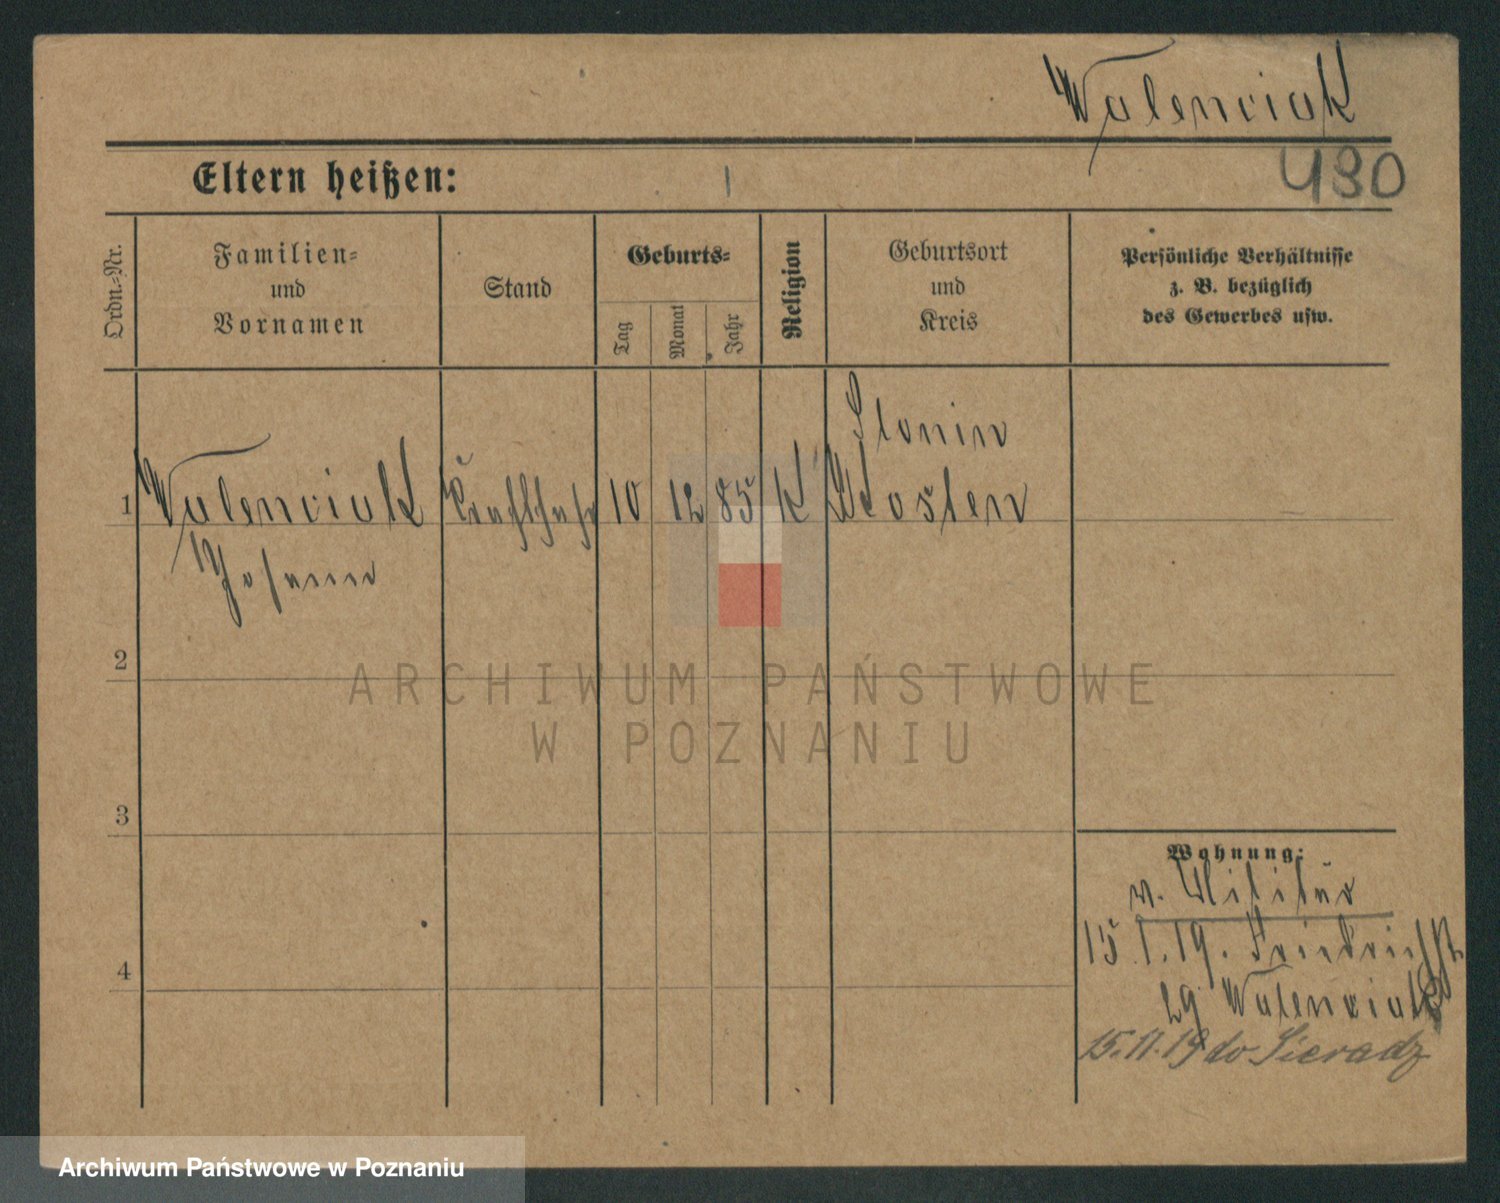 Walenciak
480
Eltern heißen:
Ordn.-Nr.
Familien-
und
Vornamen
Stand
Geburts-
Tag
Monat
Jahr
Religion
Geburtsort
und
Kreis
Persönliche Verhältnisse
z. B. bezüglich
des Gewerbes usw.
Slonin
1 Walenciak 10 12 85 K Kosten
Johann
2
3
4
Wohnung:
v. Militär
15.1.19. Friedrichst
29 Walenciak
15.11.19 do Sieradz
ARCHIWUM PAŃSTWOWE
W POZNANIU
Archiwum Państwowe w Poznaniu